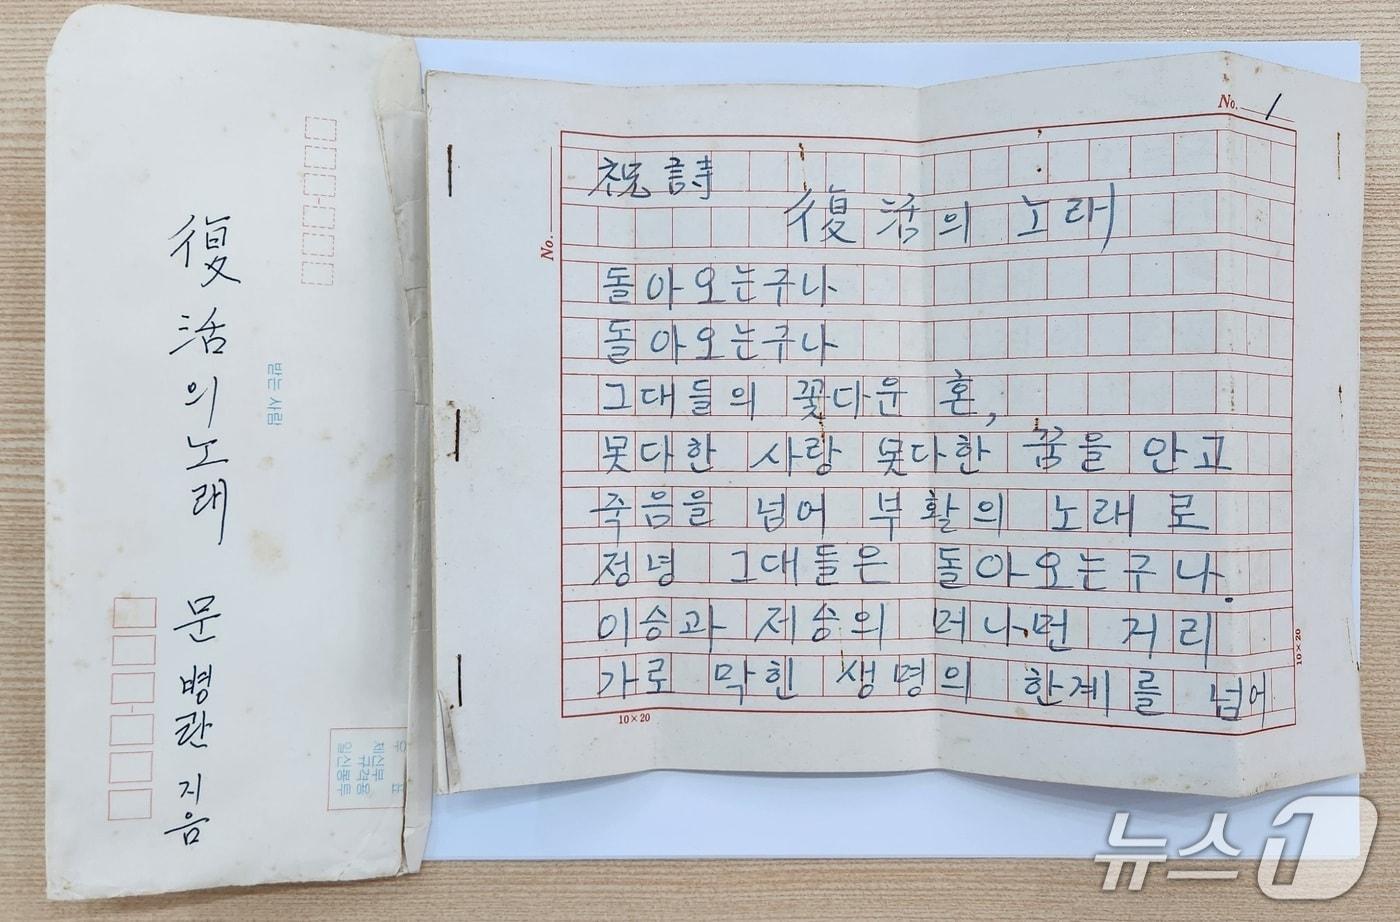 復活의 노래 문병란 지음
받는 사람
우표
체신부
규격용
일신봉투
No. 1
No.
祝詩
復活의 노래
돌아오는구나
돌아오는구나
그대들의 꽃다운 혼,
못다한 사랑 못다한 꿈을 안고
죽음을 넘어 부활의 노래로
정녕 그대들은 돌아오는구나.
이승과 저승의 머나먼 거리
가로 막힌 생명의 한계를 넘어
10×20
10×20
뉴스1